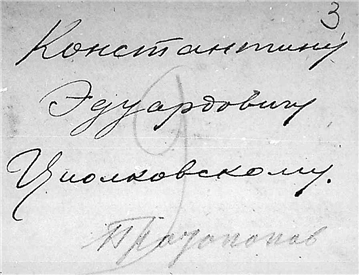 3
Константину
Эдуардовичу
Циолковскому.